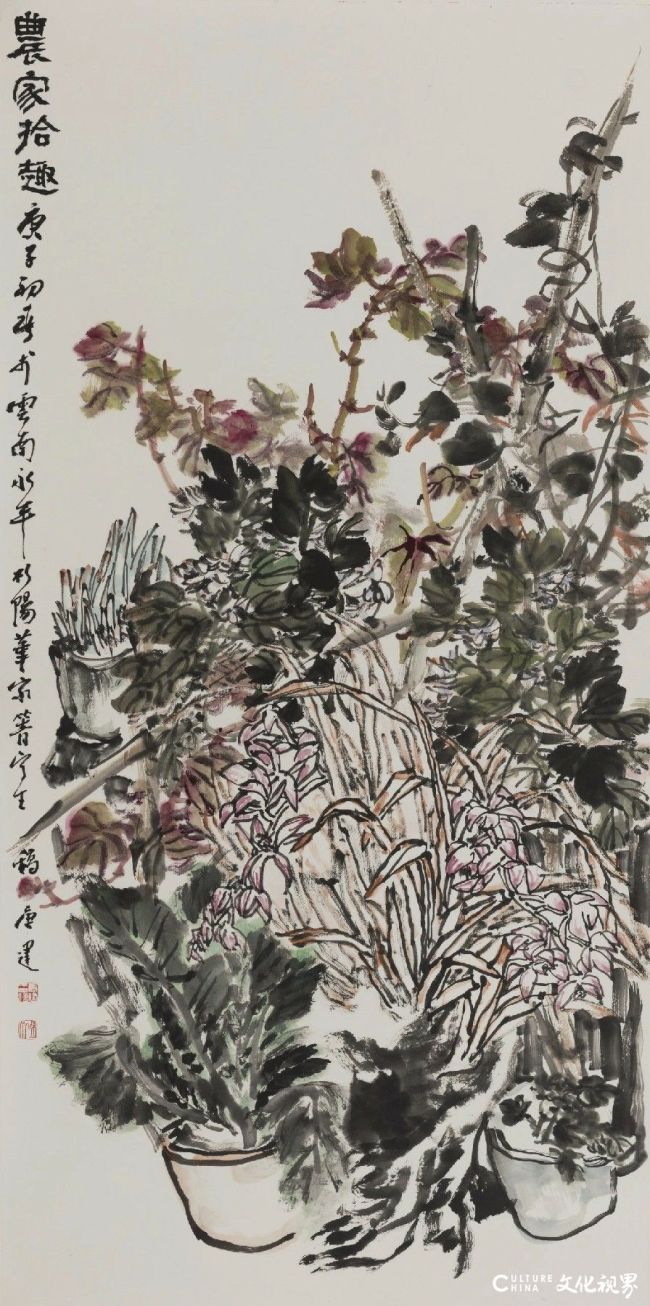 農家拾趣 庚子初春於雲南永平杉陽華家箐寫生 鶴慶 唐建
CULTURE CHINA 文化视界